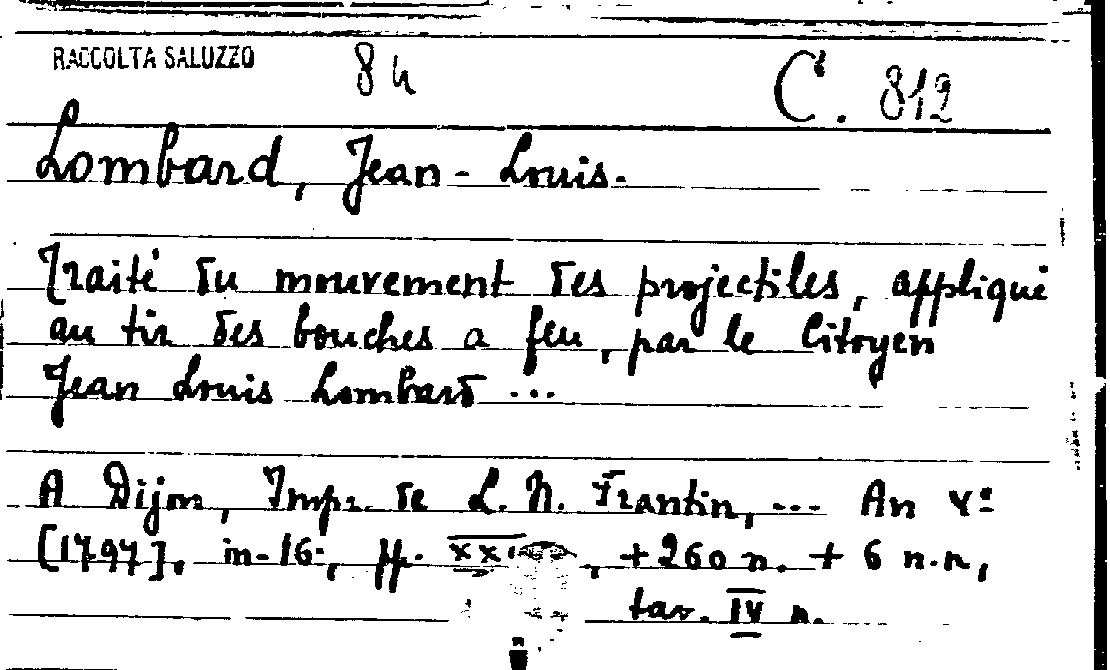 RACCOLTA SALUZZO 84 C. 812
Lombard, Jean-Louis.
Traité du mouvement des projectiles, appliqué
au tir des bouches a feu, par le Citoyen
Jean Louis Lombard ...
A Dijon, Impr. de L. N. Frantin, ... An Vº
[1797], in-16º, pp. , +260 n. + 6 n.n,
tav. IV n.